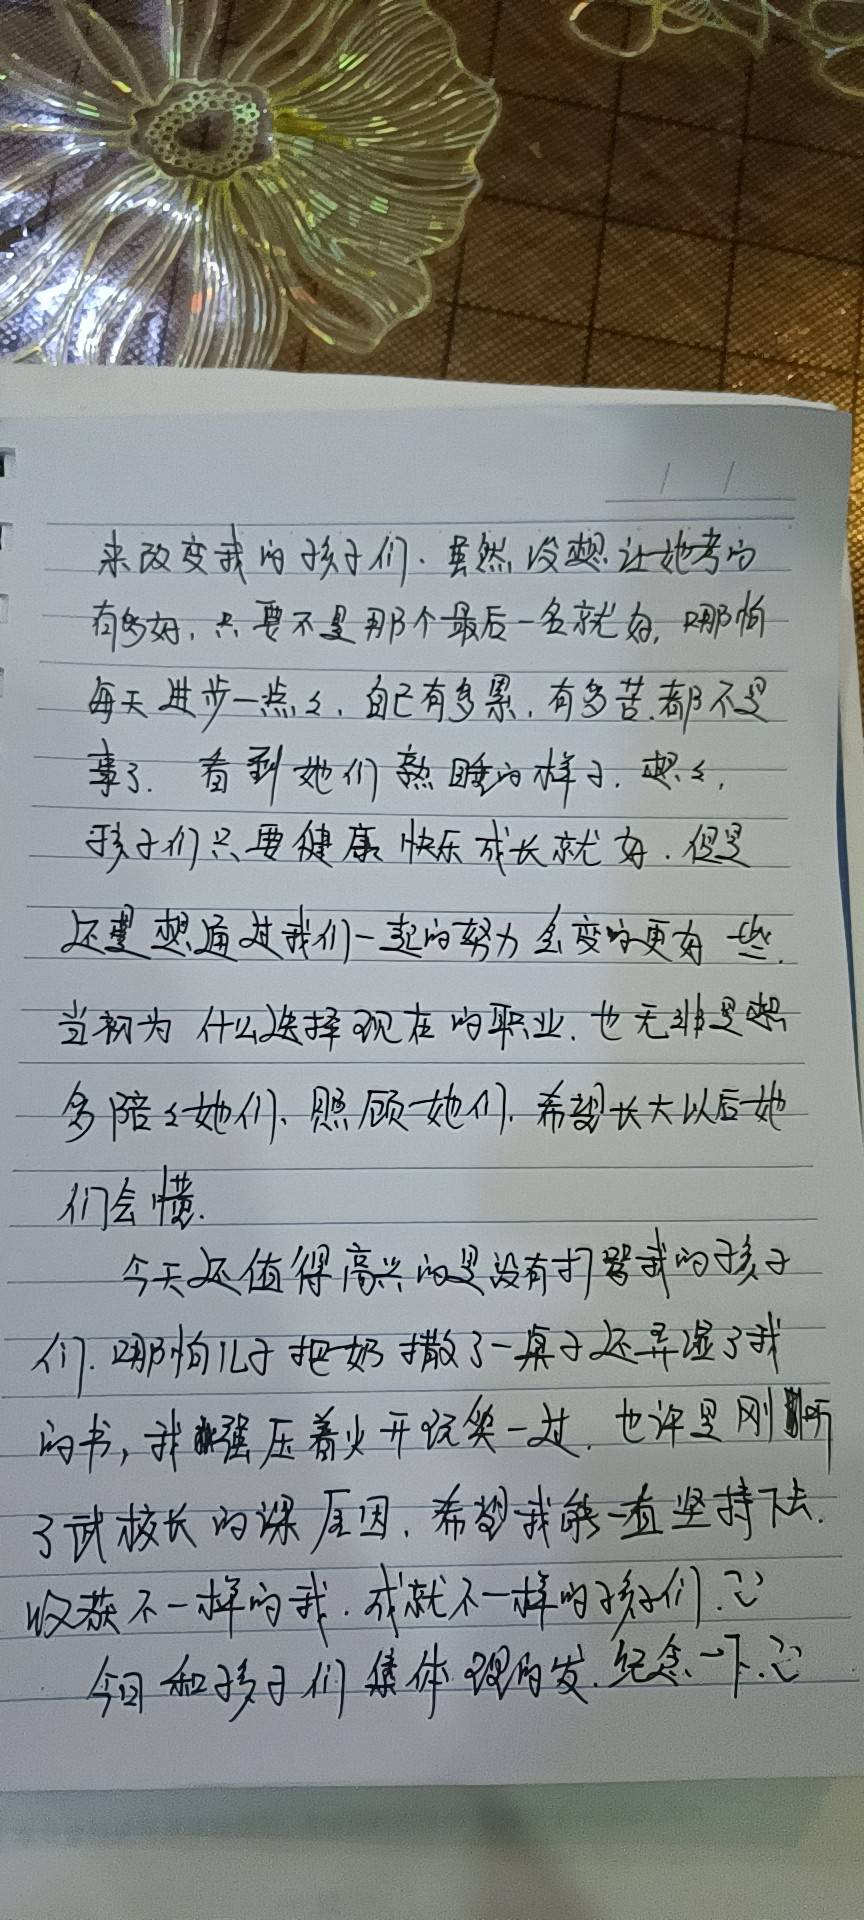 来改变我的孩子们.虽然没想让她考的
有多好,只要不是那个最后一名就好,哪怕
每天进步一点々,自己有多累,有多苦.都不是
事了.看到她们熟睡的样子.想々,
孩子们只要健康快乐成长就好.但是
还是想通过我们一起的努力会变的更好一些.
当初为什么选择现在的职业.也无非是想
多陪々她们、照顾她们.希望长大以后她
们会懂.
今天还值得高兴的是没有打骂我的孩子
们.哪怕儿子把奶撒了一桌子还弄湿了我
的书,我强压着火开玩笑一过.也许是刚听
了武校长的课原因.希望我能一直坚持下去.
收获不一样的我.成就不一样的孩子们.
今日和孩子们集体理的发.纪念一下.